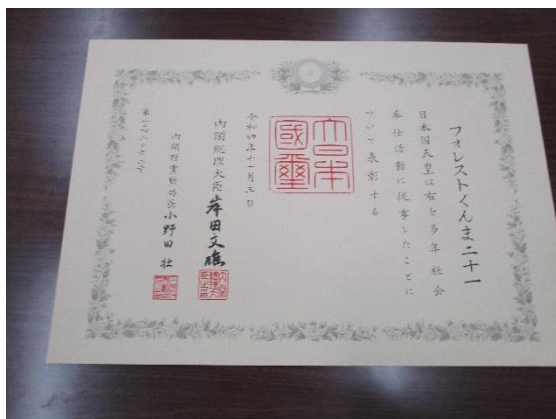 フォレストぐんま二十一
日本国天皇は右を多年社会
奉仕活動に従事したことに
ついて表彰する
大日本
國璽
令和四年十一月三日
内閣総理大臣 岸田文雄
内閣府賞勲局長 小野田 壮